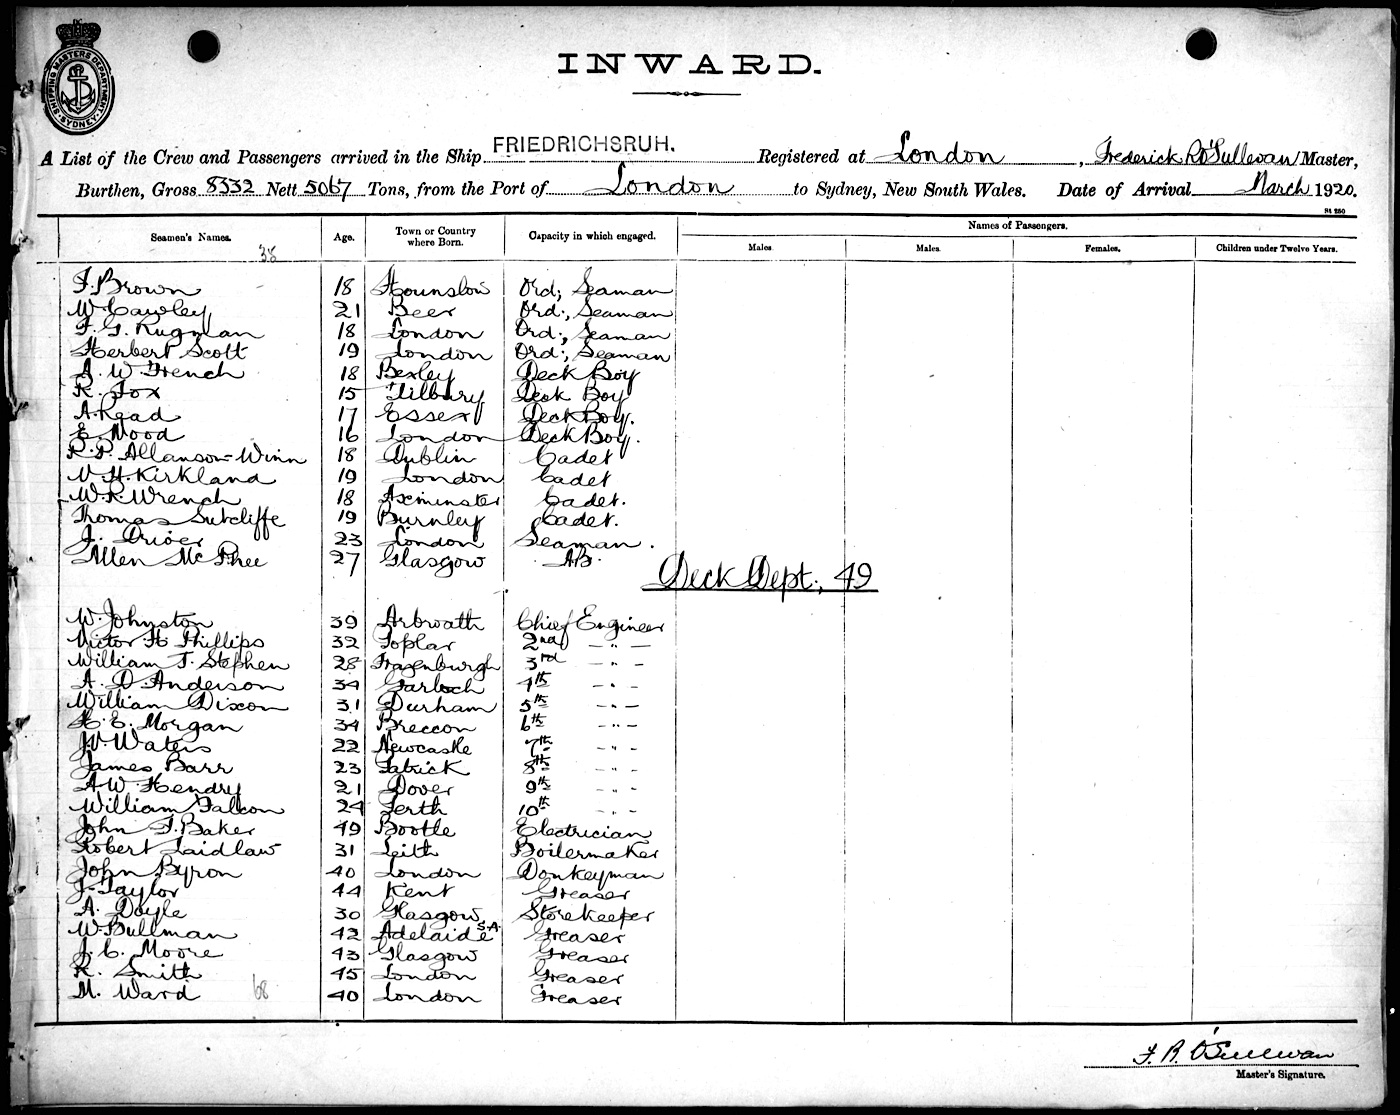 SHIPPING MASTERS DEPARTMENT
SYDNEY
INWARD.
A List of the Crew and Passengers arrived in the Ship FRIEDRICHSRUH. Registered at London, Frederick R O'Sullivan Master,
Burthen, Gross 8332 Nett 5067 Tons, from the Port of London to Sydney, New South Wales. Date of Arrival March 1920.
St 280
Seamen's Names. Age. Town or Country where Born. Capacity in which engaged. Names of Passengers.
Males. Males. Females. Children under Twelve Years.
38
F. Brown 18 Hounslow Ord; Seaman
W Cawley 21 Beer Ord:, Seaman
F. G. Rugman 18 London Ord:, Seaman
Herbert Scott 19 London Ord:, Seaman
A. W French 18 Bexley Deck Boy
R. Fox 15 Tilbury Deck Boy
A. Read 17 Essex Deck Boy.
E Wood 16 London Deck Boy.
R. P. Allanson-Winn 18 Dublin Cadet
V H. Kirkland 19 London Cadet
W. R. Wrench 18 Axminster Cadet.
Thomas Sutcliffe 19 Burnley Cadet.
J. Driver 23 London Seaman.
Allen Mc Phee 27 Glasgow AB.
Deck Dept., 49
W. Johnston 39 Arbroath Chief Engineer
Victor H Phillips 32 Poplar 2nd — " —
William J. Stephen 28 Frazerburgh 3rd — " —
A. D. Anderson 34 Garloch 4th — " —
William Dixon 31 Durham 5th — " —
H. E. Morgan 34 Breccon 6th — " —
J. V. Waters 22 Newcastle 7th — " —
James Barr 23 Patrick 8th — " —
A W. Hendry 21 Dover 9th — " —
William Falcon 24 Perth 10th — " —
John F. Baker 49 Bootle Electrician
Robert Laidlaw 31 Leith Boilermaker
John Byron 40 London Donkeyman
J. Taylor 44 Kent Greaser
A. Doyle 30 Glasgow Storekeeper
W. Bullman 42 Adelaide S.A. Greaser
J. C. Moore 43 Glasgow Greaser
R. Smith 45 London Greaser
M. Ward 68 40 London Greaser
F. R. O'Sullivan
Master's Signature.